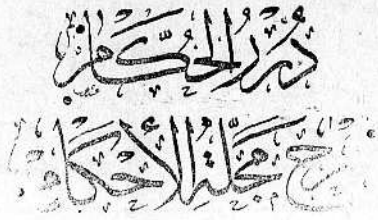 دُرَرُ الحُكَّامِ
شرح مجلّة الأحكام